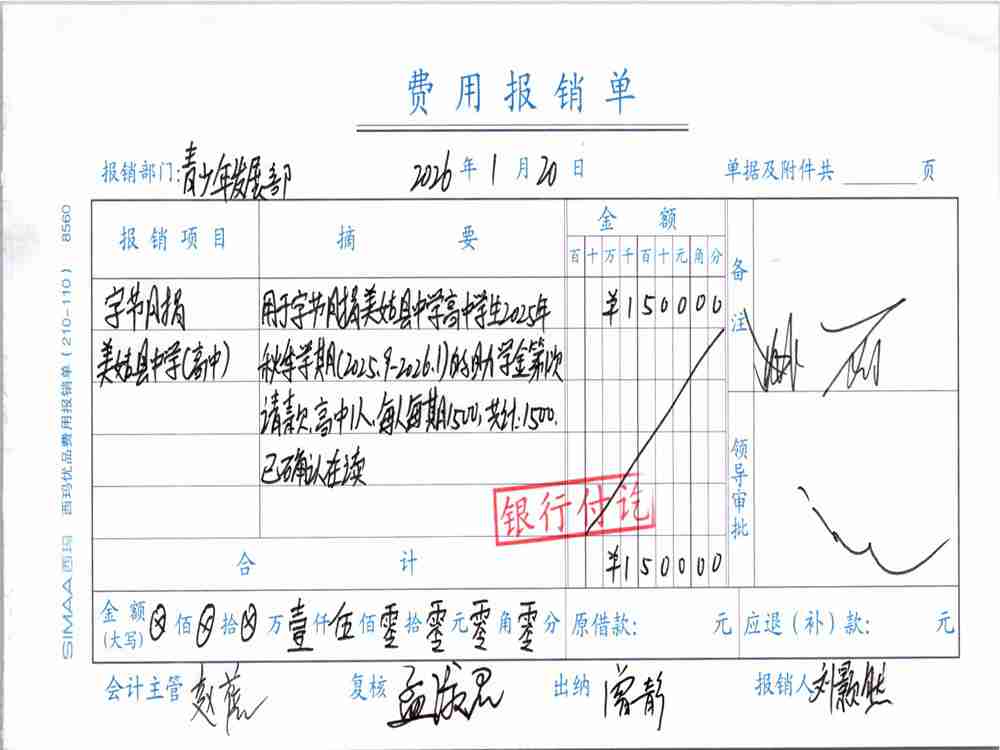 费用报销单
报销部门:青少年发展部 2026年1月20日 单据及附件共 页
报销项目 摘要 金额 备注
百十万千百十元角分
字节月捐 用于字节月捐美姑县中学高中学生2025年 ¥150000
美姑县中学(高中) 秋季学期(2025.9-2026.1)的助学金第1次
请款,高中1人,每人每期1500,共计:1500.
已确认在读
银行付讫
领导审批
合计 ¥150000
金额(大写) ⊗佰⊗拾⊗万壹仟伍佰零拾零元零角零分 原借款: 元 应退(补)款: 元
会计主管 复核 孟淑君 出纳 曾静 报销人 刘颢然
SIMAA西玛 西玛优品费用报销单(210-110) 8560